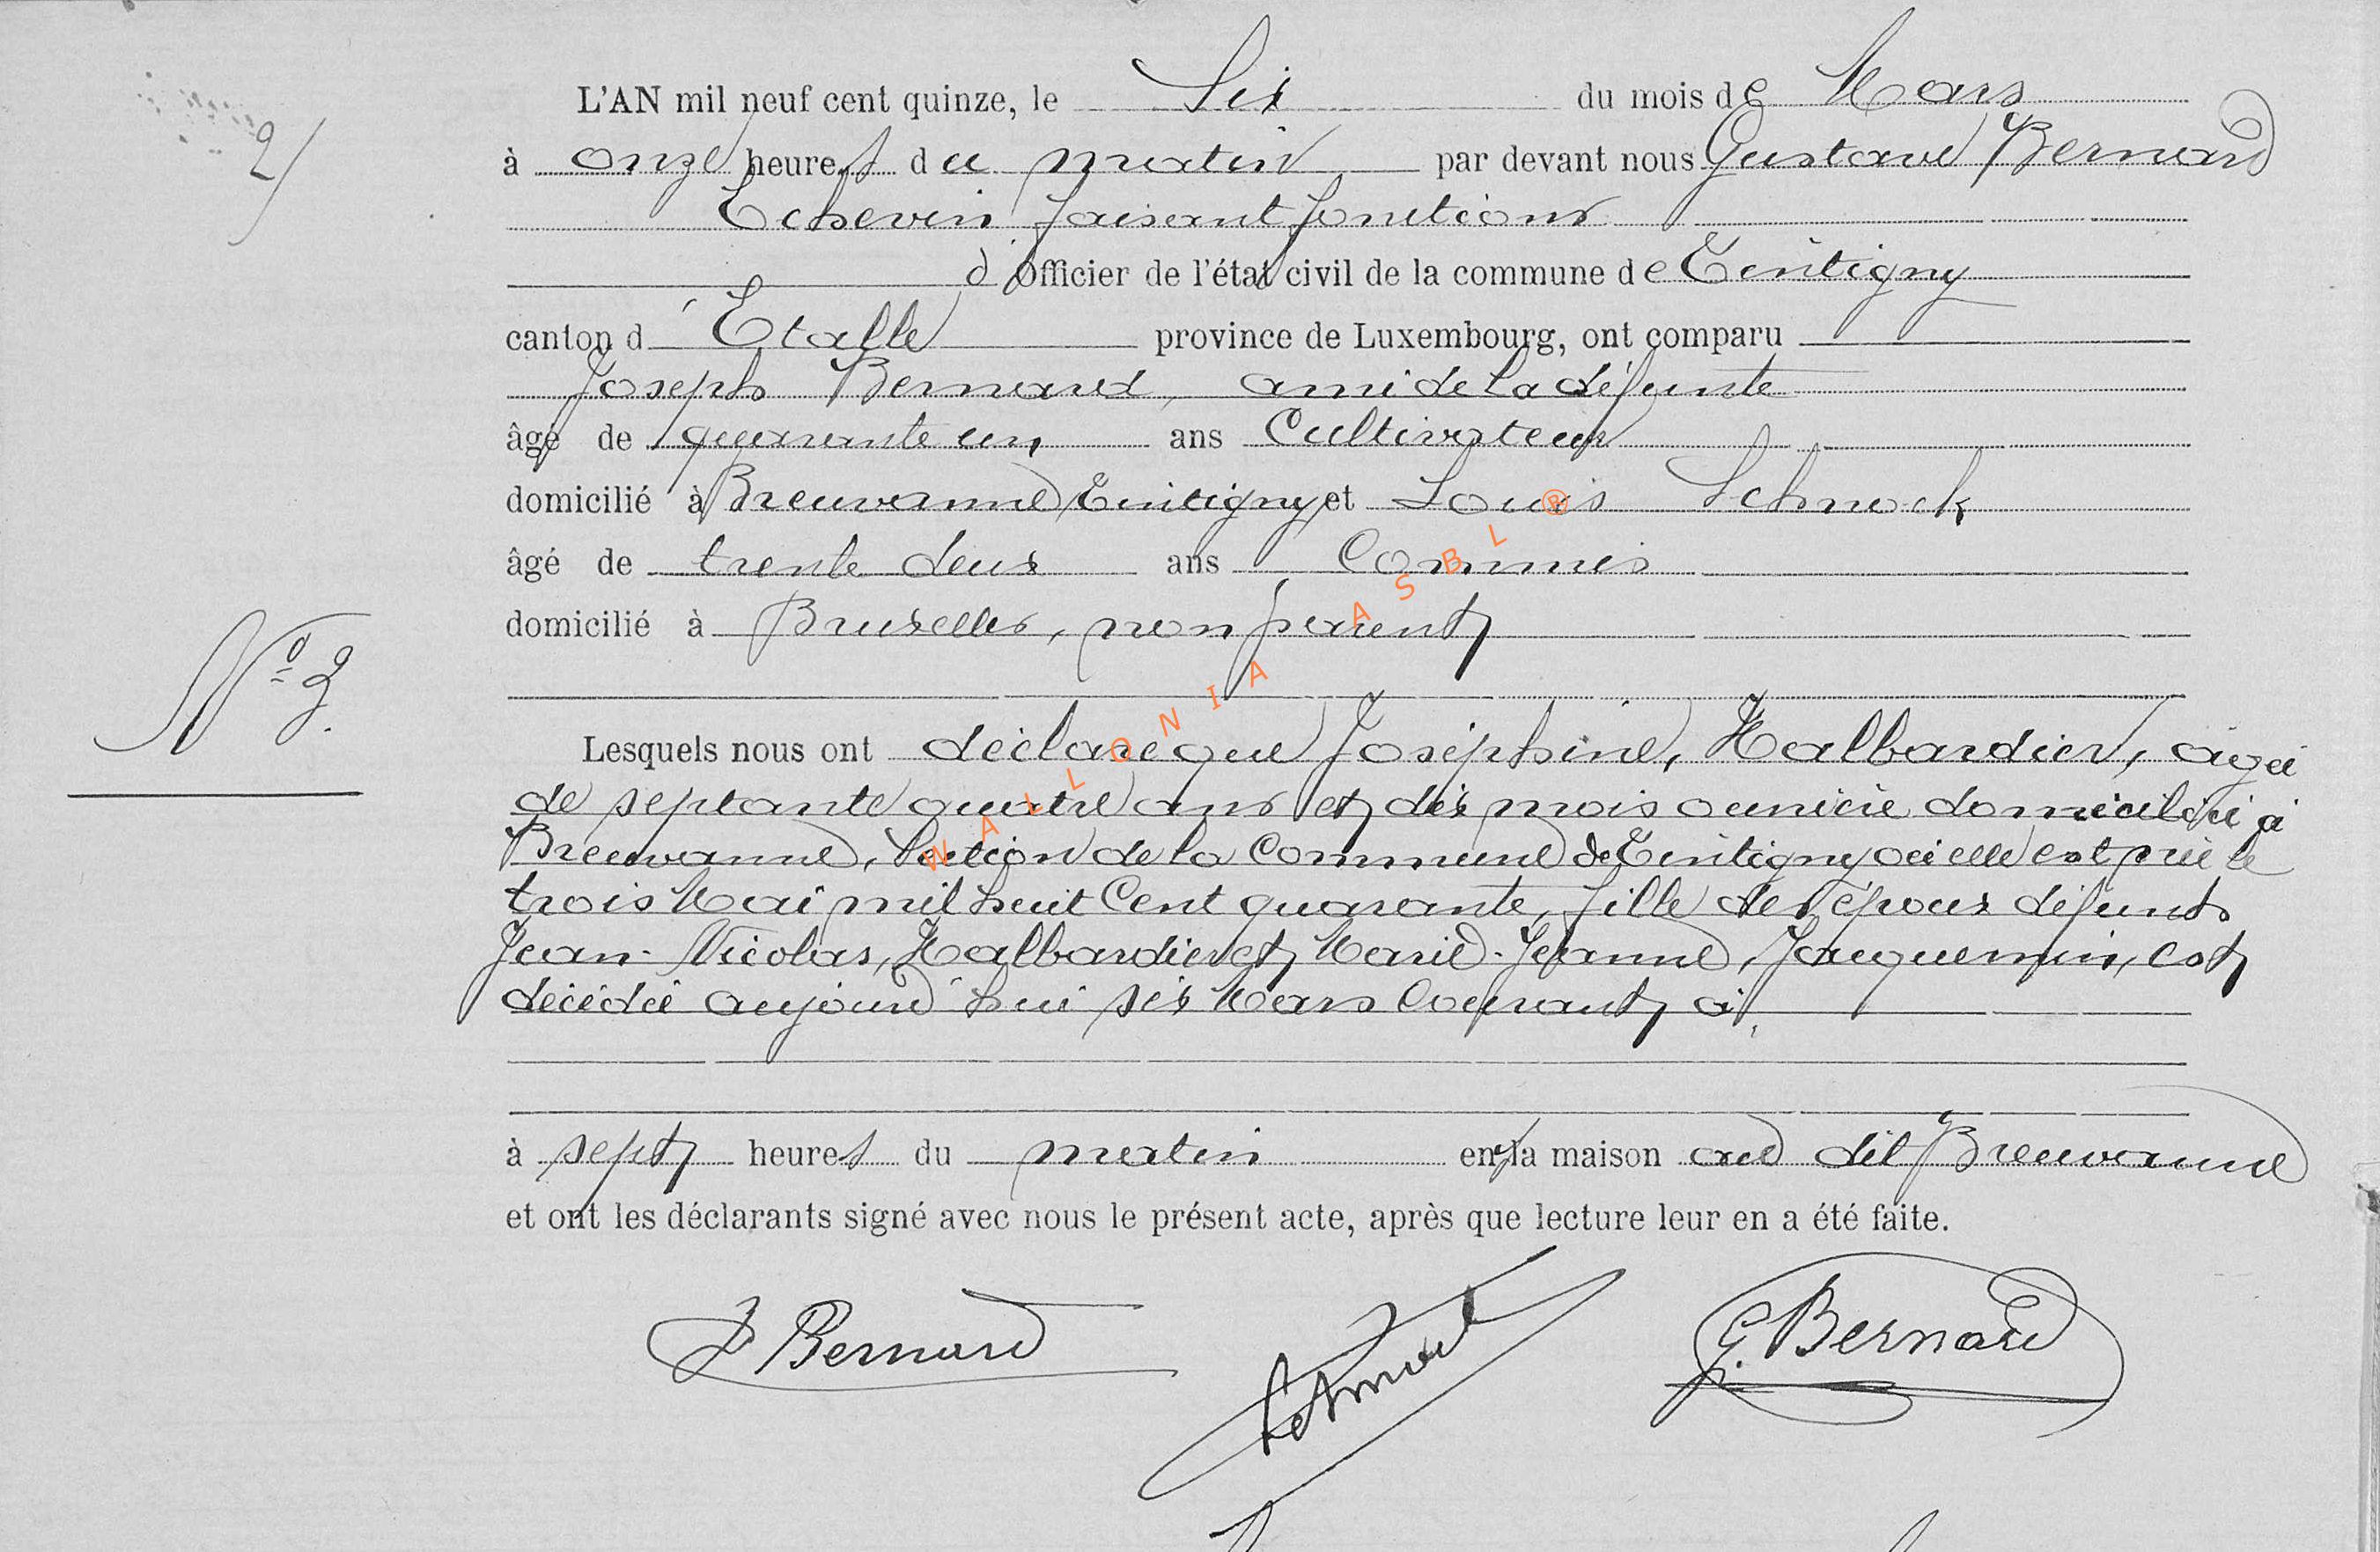 L'AN mil neuf cent quinze, le Six du mois de Mars
2/
à onze heures du matin par devant nous Gustave Bernard
Echevin faisant fonctions
d'Officier de l'état civil de la commune de Tintigny
canton d'Etalle province de Luxembourg, ont comparu
Joseph Bernard, ami de la défunte
âgé de quarante un ans Cultivateur
domicilié à Breuvanne Tintigny et Louis Schnock
âgé de trente deux ans Commis
domicilié à Bruxelles, non parent
No 2.
Lesquels nous ont déclaré que Joséphine, Halbardier, agée
de septante quatre ans et dix mois domiciliée à
Breuvanne, Section de la Commune de Tintigny où elle est née le
trois Mai mil huit Cent quarante, fille des époux défunts
Jean-Nicolas, Halbardier et Marie-Jeanne, Jacquemin, est
décédée aujourd'hui six Mars Courant à
à sept heures du matin en sa maison au dit Breuvanne
et ont les déclarants signé avec nous le présent acte, après que lecture leur en a été faite.
J Bernard
Schnock
G. Bernard
WALLONIA ASBL ®